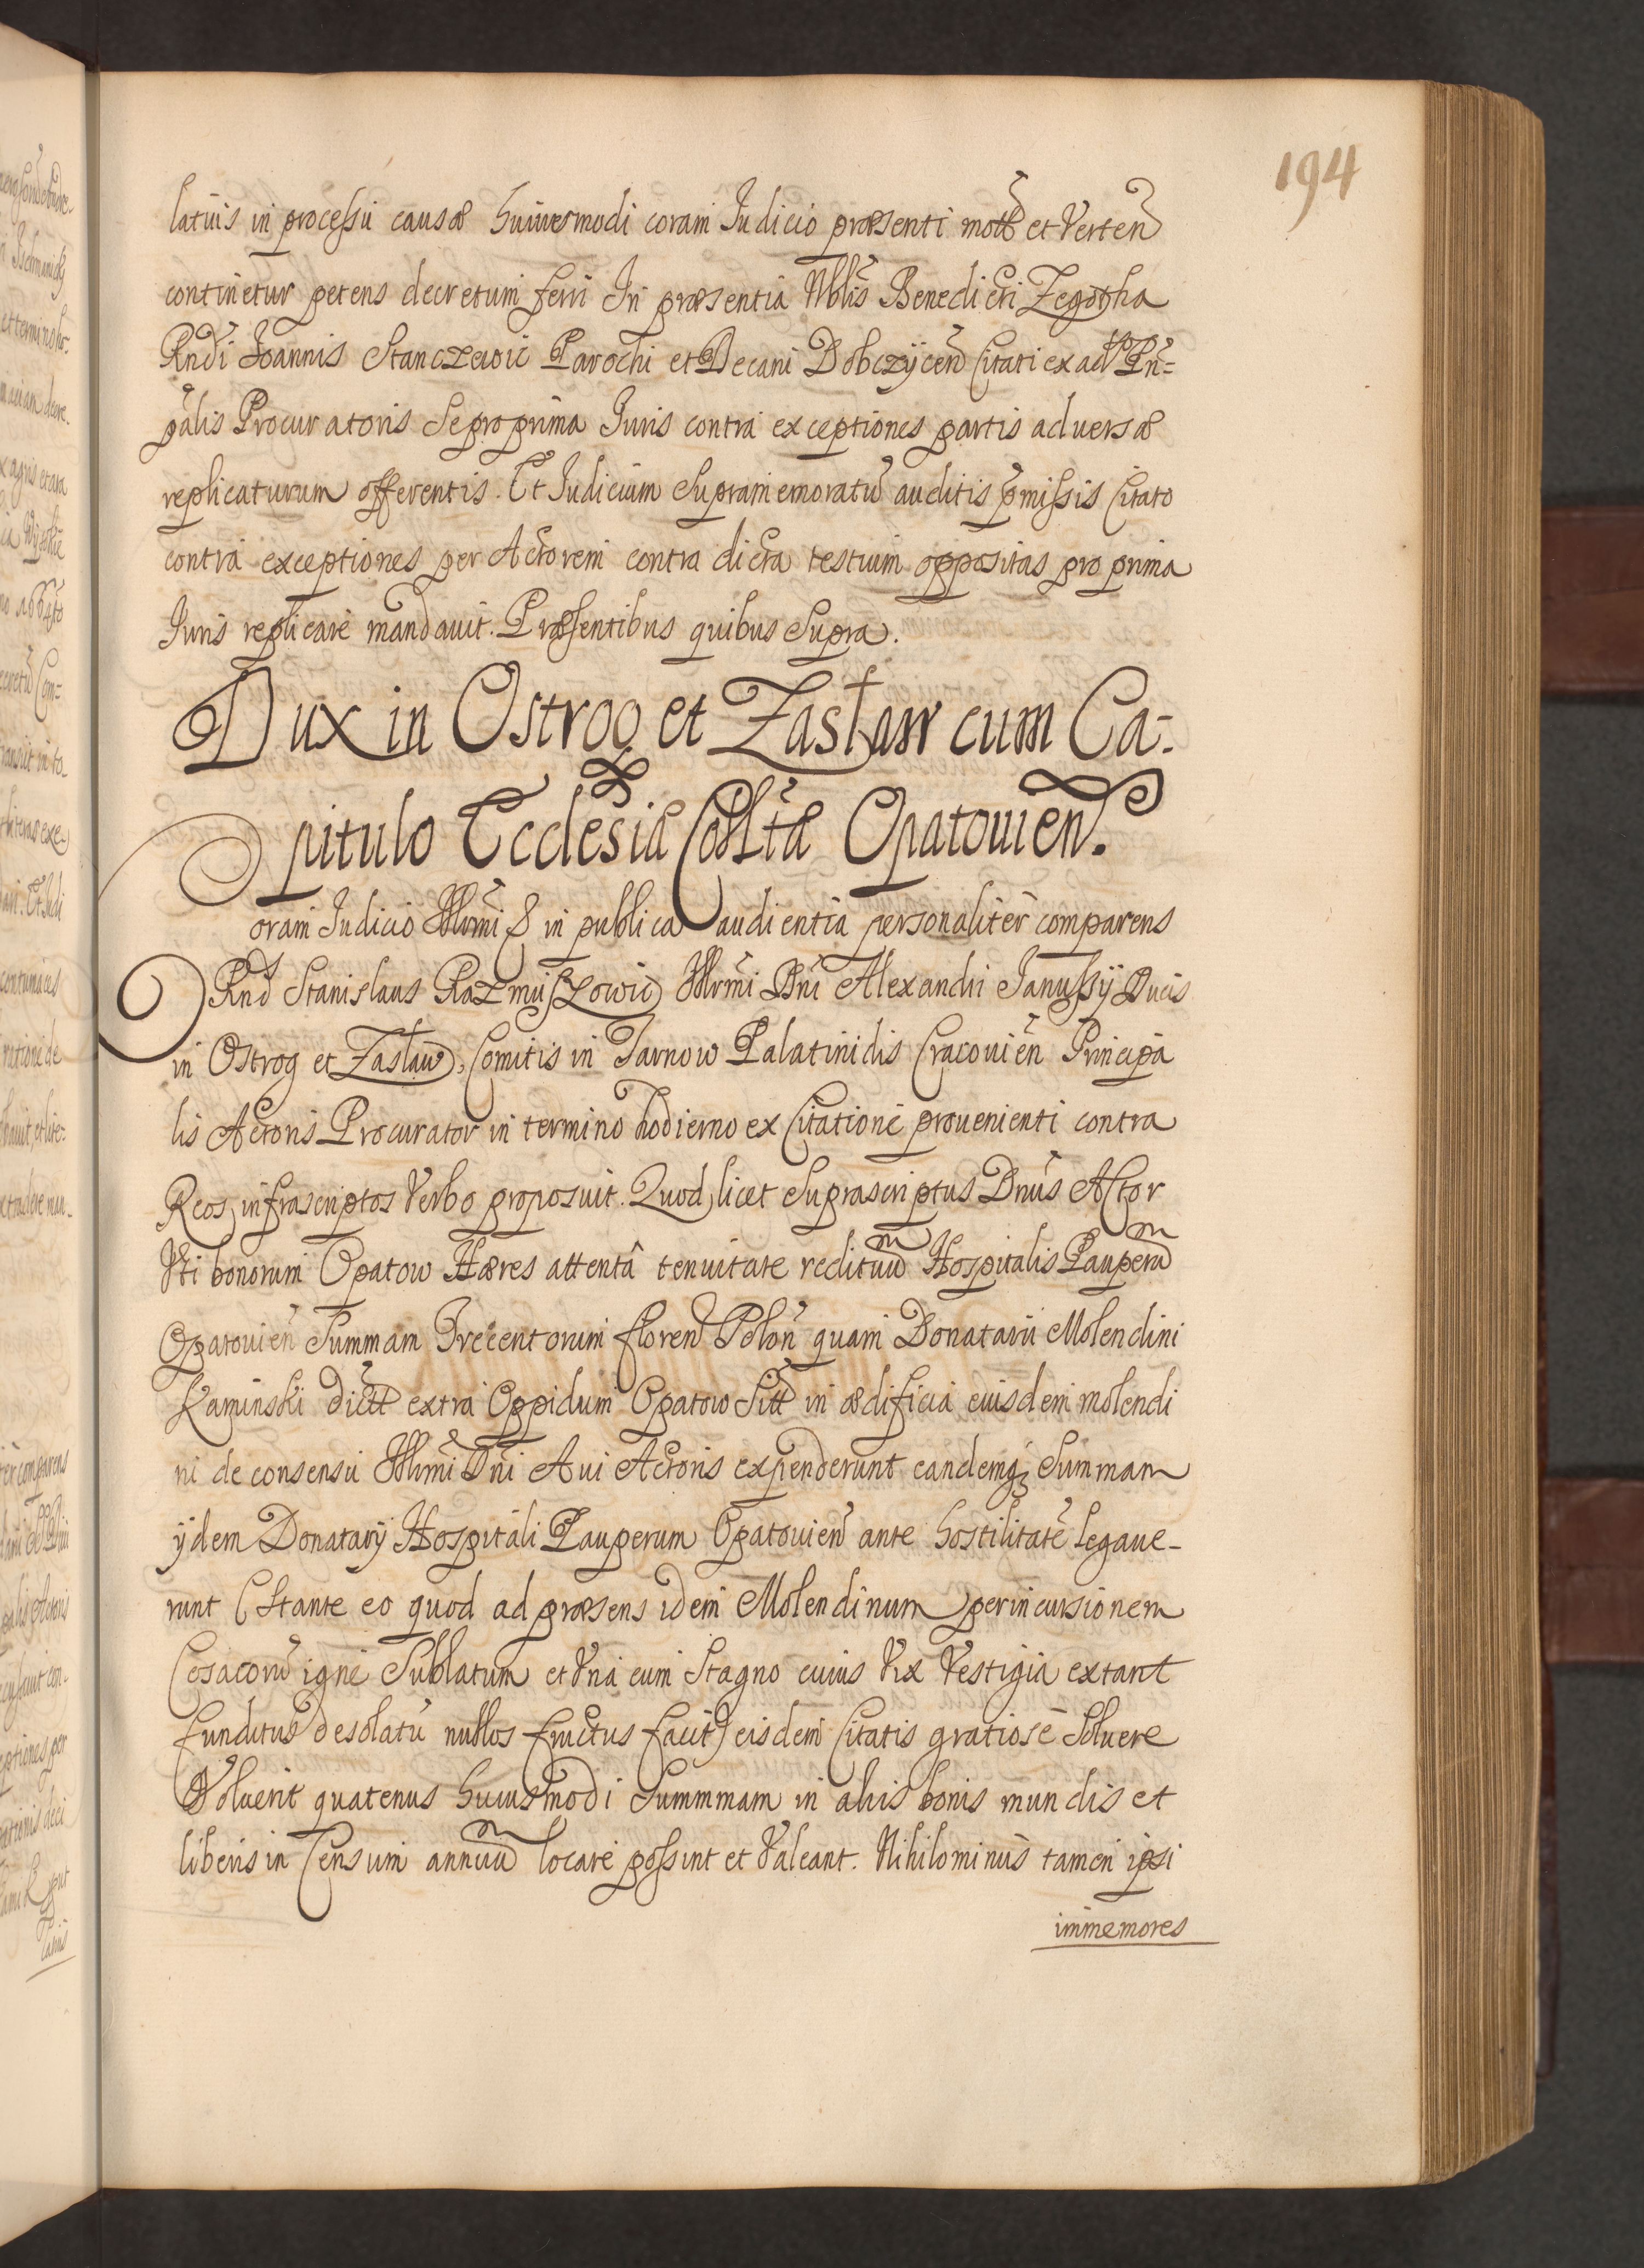 194
latius in processu causæ huiusmodi coram Judicio præsenti mott et Verten
continetur petens decretum ferri In præsentia Nblis Benedicti Zegotha
Rndi Joannis Stanczewic Parochi et Decani Dobczÿcen Citati ex adverso Prin=
palis Procuratoris Se pro prima Juris contra exceptiones partis aduersæ
replicaturum offerentis. Et Judicium Supramemoratu auditis pmissis Citato
contra exceptiones per Actorem contra dicta testium oppositas pro prima
Juris replicare mandauit. Præsentibus quibus Supra.
Dux in Ostrog et Zasław cum Ca-
pitulo Ecclesiæ Collta Opatouien.
Coram Judicio Illrmi & in publica audientia personaliter comparens
Rnd Stanislaus Razmuszowic Illrmi Dni Alexandri Janussÿ Ducis
in Ostrog et Zasław, Comitis in Tarnow Palatinidis Cracouien Principa
lis Actoris Procurator in termino hodierno ex Citatione prouenienti contra
Reos infrascriptos Verbo proposuit. Quod licet Suprascriptus Dnus Actor
Vti bonorum Opatow Hæres attentâ tenuitate redituu Hospitalis Pauperu
Opatouien Summam Trecentorum floren Polon quam Donatarii Molendini
Kaminski dictt extra Oppidum Opatow Sitt in ædificia eiusdem molendi
ni de consensu Illrmi Dni Aui Actoris expenderunt eandemq Summam
ÿdem Donatarÿ Hospitali Pauperum Opatouien ante hostilitate legaue-
runt (Stante eo quod ad præsens idem Molendinum per incursionem
Cosacoru igne Sublatum et Vna cum Stagno cuius Vix Vestigia extant
funditus desolatu nullos fructus facit) eisdem Citatis gratiose Soluere
Voluerit quatenus huiusmodi Summmam in aliis bonis mundis et
liberis in Censum annuu locare possint et Valeant. Nihilominus tamen ipsi
immemores